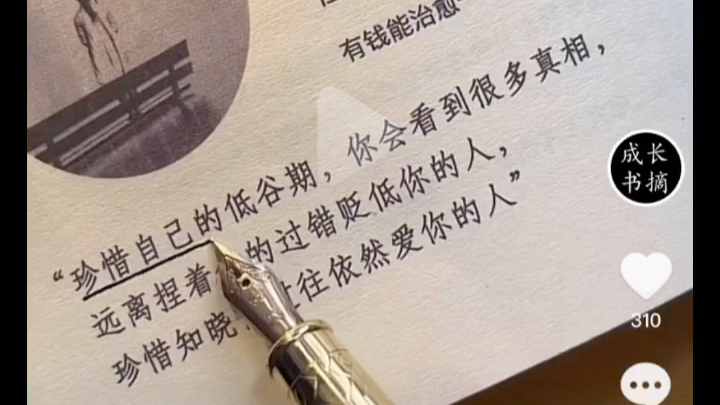 有钱能治愈
“珍惜自己的低谷期，你会看到很多真相，
远离捏着 的过错贬低你的人，
珍惜知晓 往依然爱你的人”
成长
书摘
310